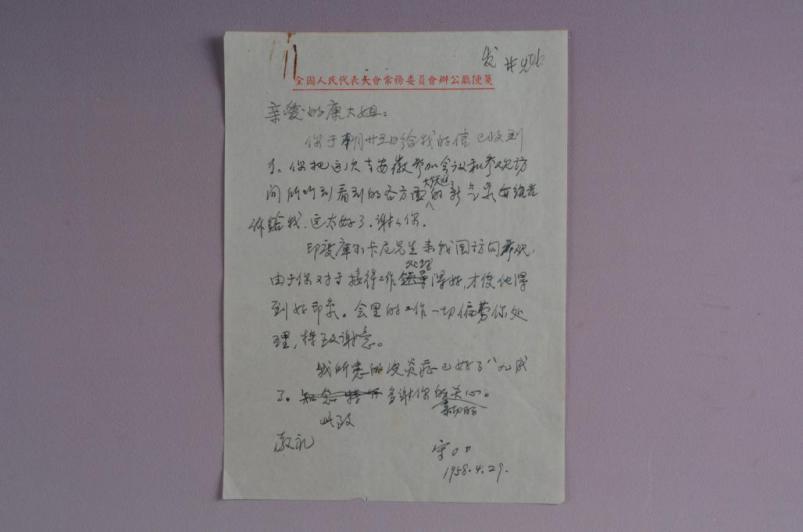 发
全国人民代表大會常務委員會辦公廳便箋
亲爱的康大姐：
你于本月廿五日给我的信已收到
了。你把这次去安徽参加会议和参观访
问所听到看到的各方面的新气象
诉给我，这太好了。谢谢你。
印度库尔卡尼先生来我国访问参观，
由于你对于接待工作处理得好，才使他得
到好印象。会里的工作一切偏劳你处
理，特致谢意。
我所患的皮炎症已好了八九成
了。多谢你的关心。
此致
敬礼
1958.4.29.